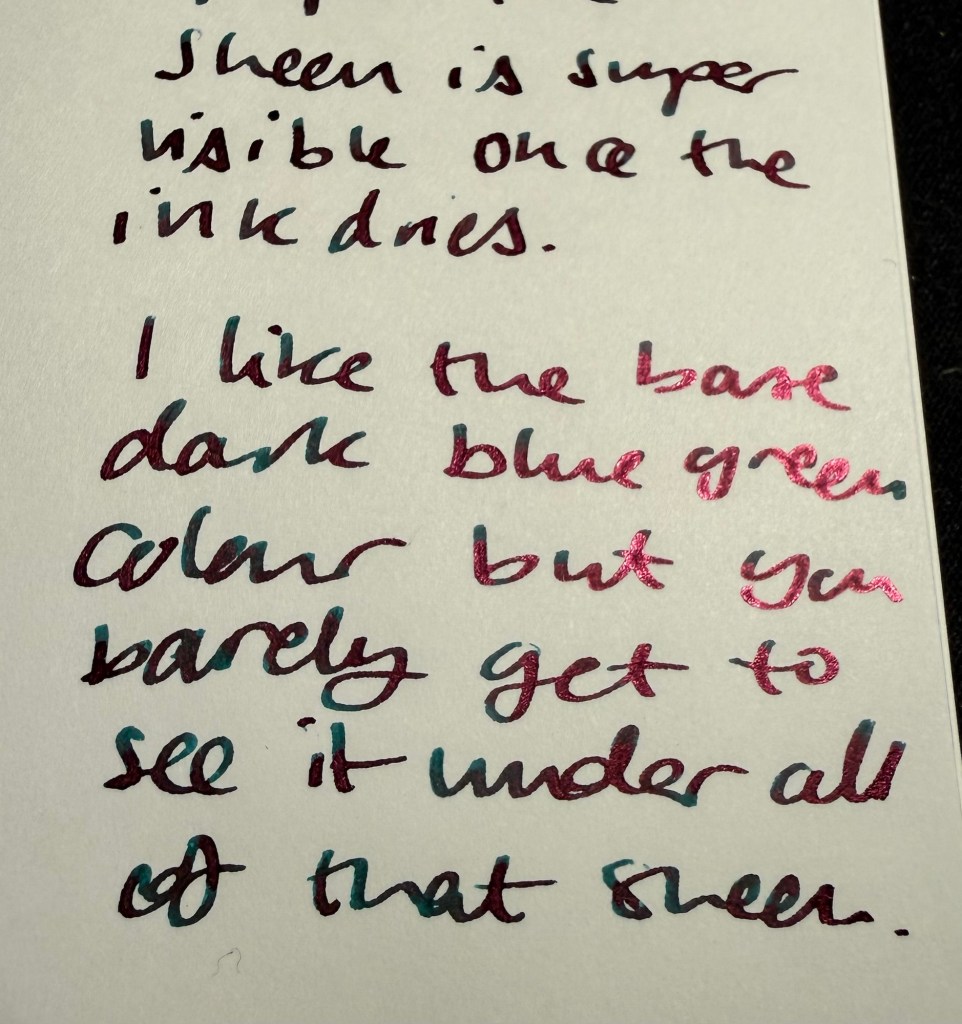 sheen is super
visible once the
ink dries.
I like the base
dark blue green
colour but you
barely get to
see it under all
of that sheen.